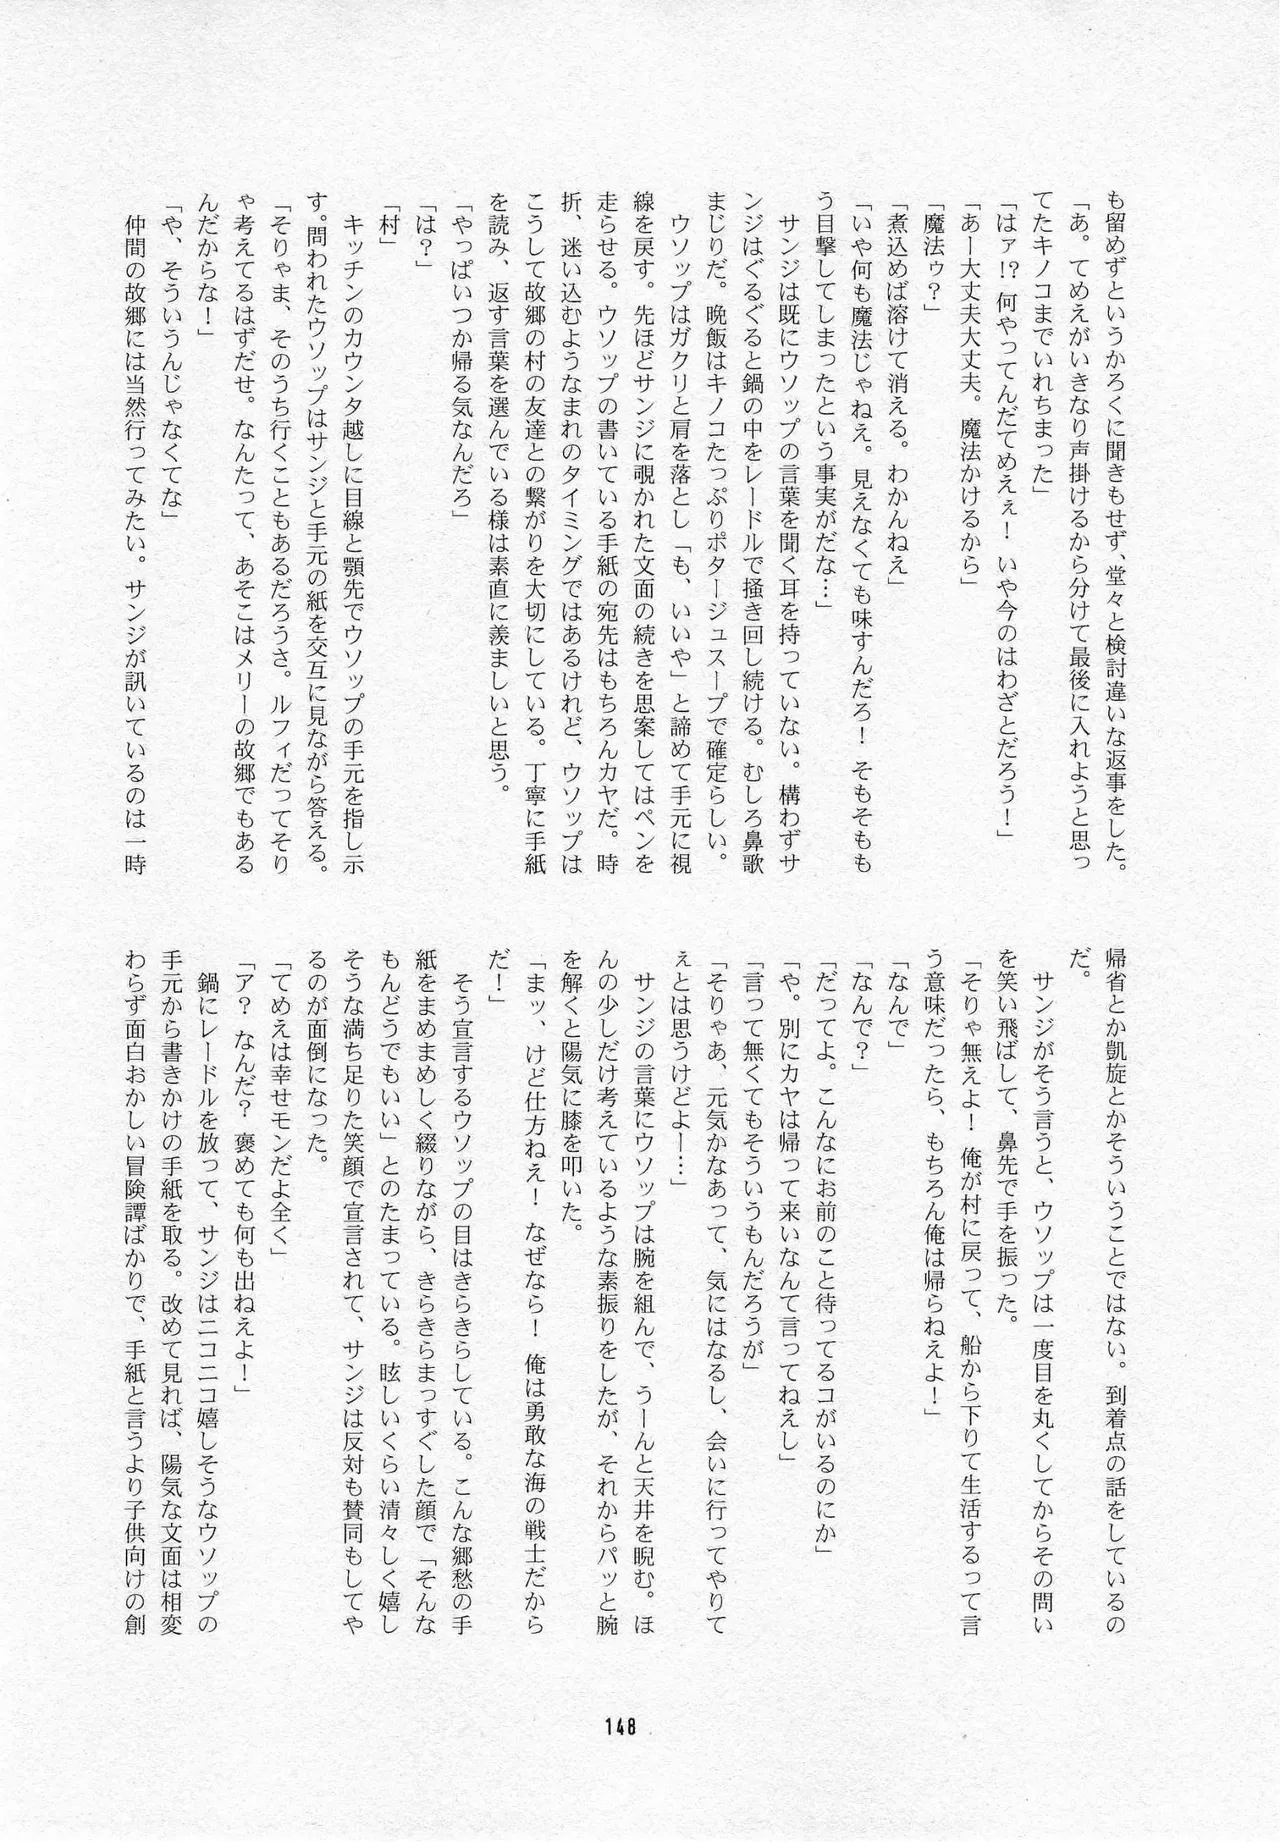 も留めずというかろくに聞きもせず、堂々と検討違いな返事をした。
「あ。てめえがいきなり声掛けるから分けて最後に入れようと思っ
てたキノコまでいれちまった」
「はァ!? 何やってんだてめえぇ！ いや今のはわざとだろう！」
「あー大丈夫大丈夫。魔法かけるから」
「魔法ゥ？」
「煮込めば溶けて消える。わかんねえ」
「いや何も魔法じゃねえ。見えなくても味すんだろ！ そもそもも
う目撃してしまったという事実がだな…」
　サンジは既にウソップの言葉を聞く耳を持っていない。構わずサ
ンジはぐるぐると鍋の中をレードルで掻き回し続ける。むしろ鼻歌
まじりだ。晩飯はキノコたっぷりポタージュスープで確定らしい。
　ウソップはガクリと肩を落とし「も、いいや」と諦めて手元に視
線を戻す。先ほどサンジに覗かれた文面の続きを思案してはペンを
走らせる。ウソップの書いている手紙の宛先はもちろんカヤだ。時
折、迷い込むようなまれのタイミングではあるけれど、ウソップは
こうして故郷の村の友達との繋がりを大切にしている。丁寧に手紙
を読み、返す言葉を選んでいる様は素直に羨ましいと思う。
「やっぱいつか帰る気なんだろ」
「は？」
「村」
　キッチンのカウンタ越しに目線と顎先でウソップの手元を指し示
す。問われたウソップはサンジと手元の紙を交互に見ながら答える。
「そりゃま、そのうち行くこともあるだろうさ。ルフィだってそり
ゃ考えてるはずだぜ。なんたって、あそこはメリーの故郷でもある
んだからな！」
「や、そういうんじゃなくてな」
　仲間の故郷には当然行ってみたい。サンジが訊いているのは一時
帰省とか凱旋とかそういうことではない。到着点の話をしているの
だ。
　サンジがそう言うと、ウソップは一度目を丸くしてからその問い
を笑い飛ばして、鼻先で手を振った。
「そりゃ無えよ！ 俺が村に戻って、船から下りて生活するって言
う意味だったら、もちろん俺は帰らねえよ！」
「なんで」
「なんで？」
「だってよ。こんなにお前のこと待ってるコがいるのにか」
「や。別にカヤは帰って来いなんて言ってねえし」
「言って無くてもそういうもんだろうが」
「そりゃあ、元気かなあって、気にはなるし、会いに行ってやりて
ぇとは思うけどよー…」
　サンジの言葉にウソップは腕を組んで、うーんと天井を睨む。ほ
んの少しだけ考えているような素振りをしたが、それからパッと腕
を解くと陽気に膝を叩いた。
「まッ、けど仕方ねえ！ なぜなら！ 俺は勇敢な海の戦士だから
だ！」
　そう宣言するウソップの目はきらきらしている。こんな郷愁の手
紙をまめまめしく綴りながら、きらきらまっすぐした顔で「そんな
もんどうでもいい」とのたまっている。眩しいくらい清々しく嬉し
そうな満ち足りた笑顔で宣言されて、サンジは反対も賛同もしてや
るのが面倒になった。
「てめえは幸せモンだよ全く」
「ア？ なんだ？ 褒めても何も出ねえよ！」
　鍋にレードルを放って、サンジはニコニコ嬉しそうなウソップの
手元から書きかけの手紙を取る。改めて見れば、陽気な文面は相変
わらず面白おかしい冒険譚ばかりで、手紙と言うより子供向けの創
148